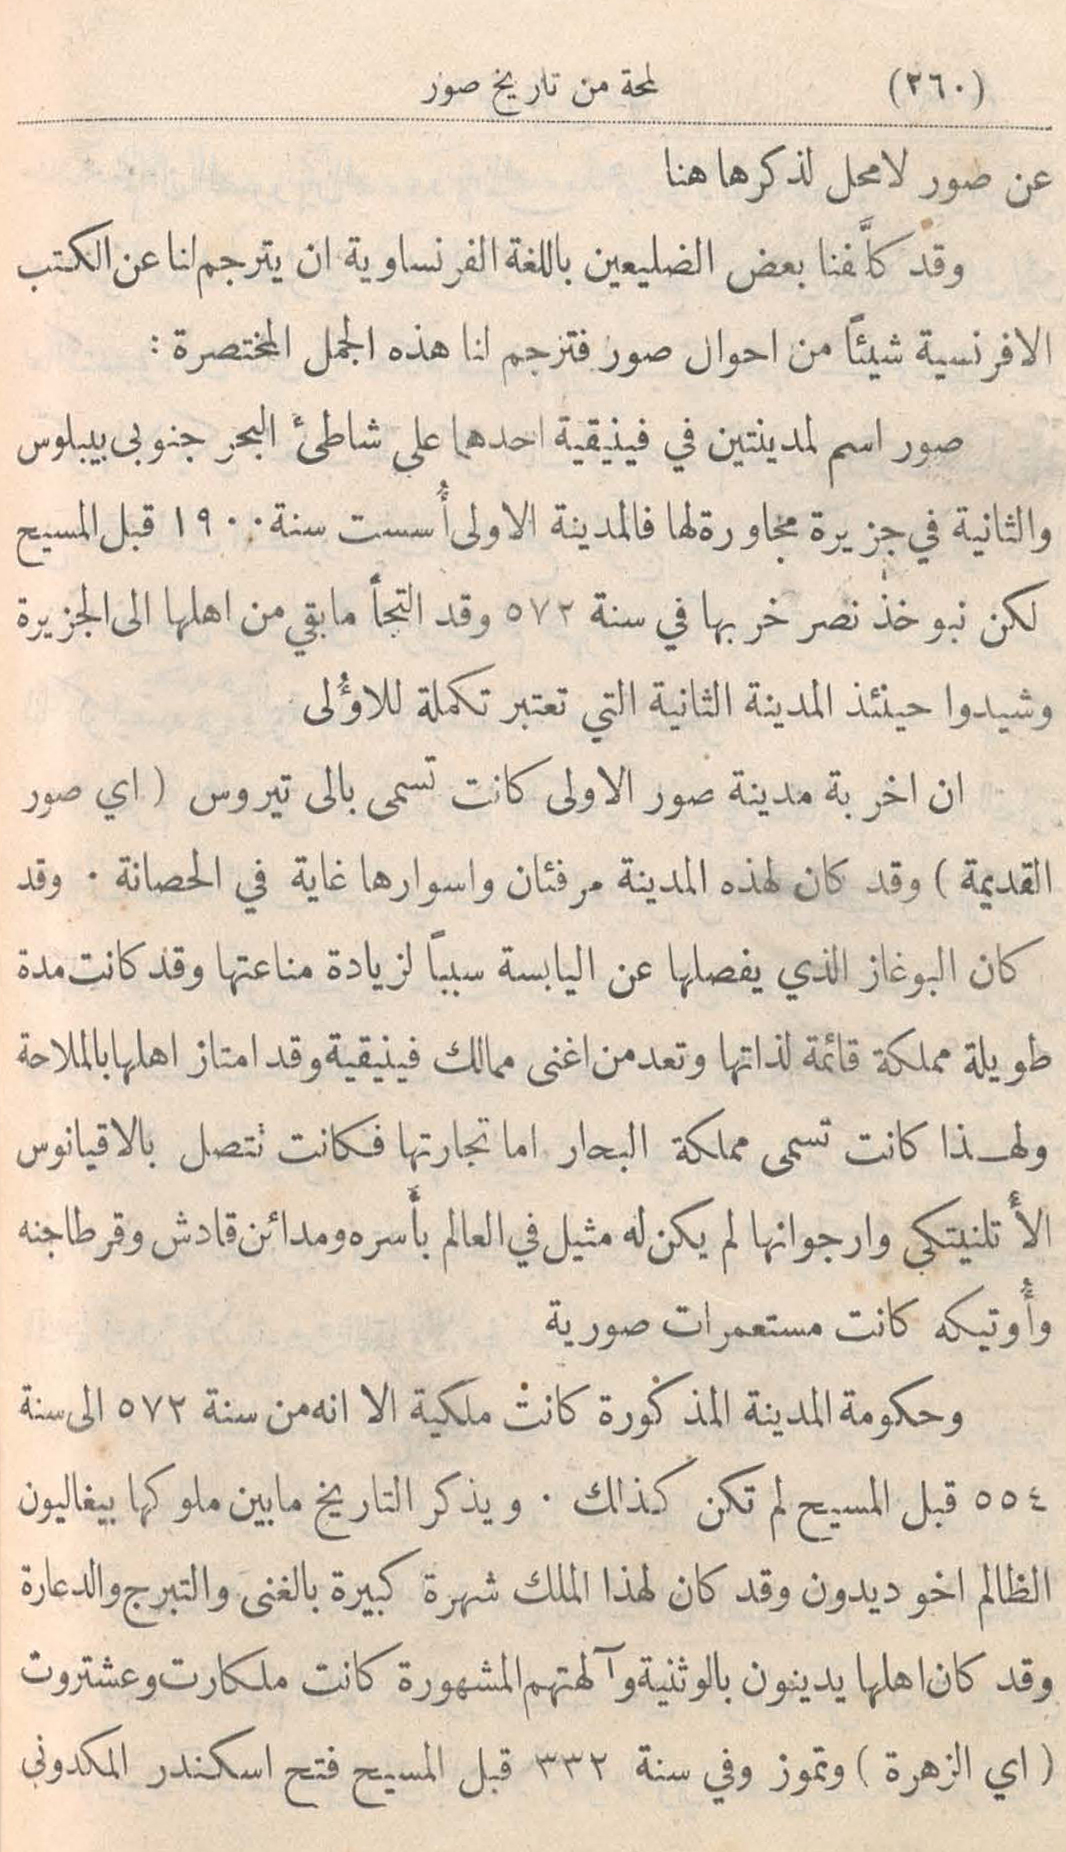 (٣٦٠) لمحة من تاريخ صور
عن صور لا محل لذكرها هنا
وقد كلَّفنا بعض الضليعين باللغة الفرنساوية ان يترجم لنا عن الكتب
الافرنسية شيئًا من احوال صور فترجم لنا هذه الجمل المختصرة :
صور اسم لمدينتين في فينيقية احدهما على شاطئ البحر جنوبي بيبلوس
والثانية في جزيرة مجاورة لها فالمدينة الاولى أُسست سنة ١٩٠٠ قبل المسيح
لكن نبوخذ نصر خربها في سنة ٥٧٢ وقد التجأ ما بقي من اهلها الى الجزيرة
وشيدوا حينئذ المدينة الثانية التي تعتبر تكملة للاؤُلى
ان اخربة مدينة صور الاولى كانت تسمى بالى تيروس ( اي صور
القديمة ) وقد كان لهذه المدينة مرفئان واسوارها غاية في الحصانة ٠ وقد
كان البوغاز الذي يفصلها عن اليابسة سببًا لزيادة مناعتها وقد كانت مدة
طويلة مملكة قائمة لذاتها وتعد من اغنى ممالك فينيقية وقد امتاز اهلها بالملاحة
ولهـذا كانت تسمى مملكة البحار اما تجارتها فكانت نتصل بالاقيانوس
الأتلنيتكي وارجوانها لم يكن له مثيل في العالم بأسره ومدائن قادش وقرطاجنه
وأُوتيكه كانت مستعمرات صورية
وحكومة المدينة المذكورة كانت ملكية الا انه من سنة ٥٧٢ الى سنة
٥٥٤ قبل المسيح لم تكن كذالك ٠ ويذكر التاريخ ما بين ملوكها بيغاليون
الظالم اخو ديدون وقد كان لهذا الملك شهرة كبيرة بالغنى والتبرج والدعارة
وقد كان اهلها يدينون بالوثنية وآلهتهم المشهورة كانت ملكارت وعشتروت
( اي الزهرة ) وتموز وفي سنة ٣٣٢ قبل المسيح فتح اسكندر المكدوني